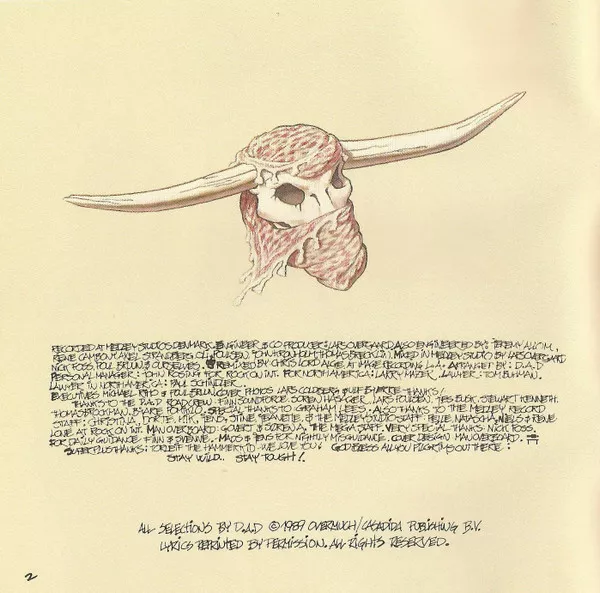 RECORDED AT MEDLEY STUDIOS DENMARK. ENGINEER & CO PRODUCER: LARS OVERGAARD. ALSO ENGINEERED BY: JEREMY ALLOM.
RENE CAMBONY. AXEL STRANDBERG. POULSEN. JOHN KRONHOLM. THOMAS BREKLING. MIXED IN MEDLEY STUDIO BY LARS OVERGAARD
NICK FOSS, POUL BRUUN & OURSELVES. REMIXED BY CHRIS LORD ALGE AT IMAGE RECORDING L.A. ARRANGED BY: D.A.D
PERSONAL MANAGER: JOHN ROSING FOR ROCK ON INT. FOR NORTH AMERICA: LARRY MAZER. LAWYER: TOM BUHMAN.
LAWYER IN NORTH AMERICA: PAUL SCHINDLER.
EXECUTIVES MICHAEL RITTO & POUL BRUUN. COVER PHOTOS LARS COLDBERG & ULF BJERRE. THANKS!
THANKS TO THE D.A.D ROADCREW. FINN SOUNDFORCE. SOREN HASAGER. LARS POULSEN. STEWART KENNETH.
THOMAS BROCKMAN. BJARE POMPILO. SPECIAL THANKS TO GRAHAM LEES. ALSO THANKS TO THE MEDLEY RECORD
STAFF: CHRISTINA, DORTE, HITS, JENS, STINE, JEANETTE. & THE MEDLEY STUDIO STAFF PELLE, NATASCHA, NIELS & RENE
LOVE AT ROCK ON INT. MAN OVERBOARD: GOVERT & SOREN A. THE MEGA STAFF. VERY SPECIAL THANKS: NICK FOSS.
FOR DAILY GUIDANCE: FINN & SVENNE. MADS & JENS FOR NIGHTLY MISGUIDANCE. COVER DESIGN MAN OVERBOARD.
SUPER PLUS THANKS: TORLEIF THE HAMMER WE LOVE YOU! GOD BLESS ALL YOU PILGRIMS OUT THERE:
STAY WILD.. STAY TOUGH!.
ALL SELECTIONS BY D.A.D © 1989 OVERMUCH/CASADIDA PUBLISHING B.V.
LYRICS REPRINTED BY PERMISSION. ALL RIGHTS RESERVED.
2